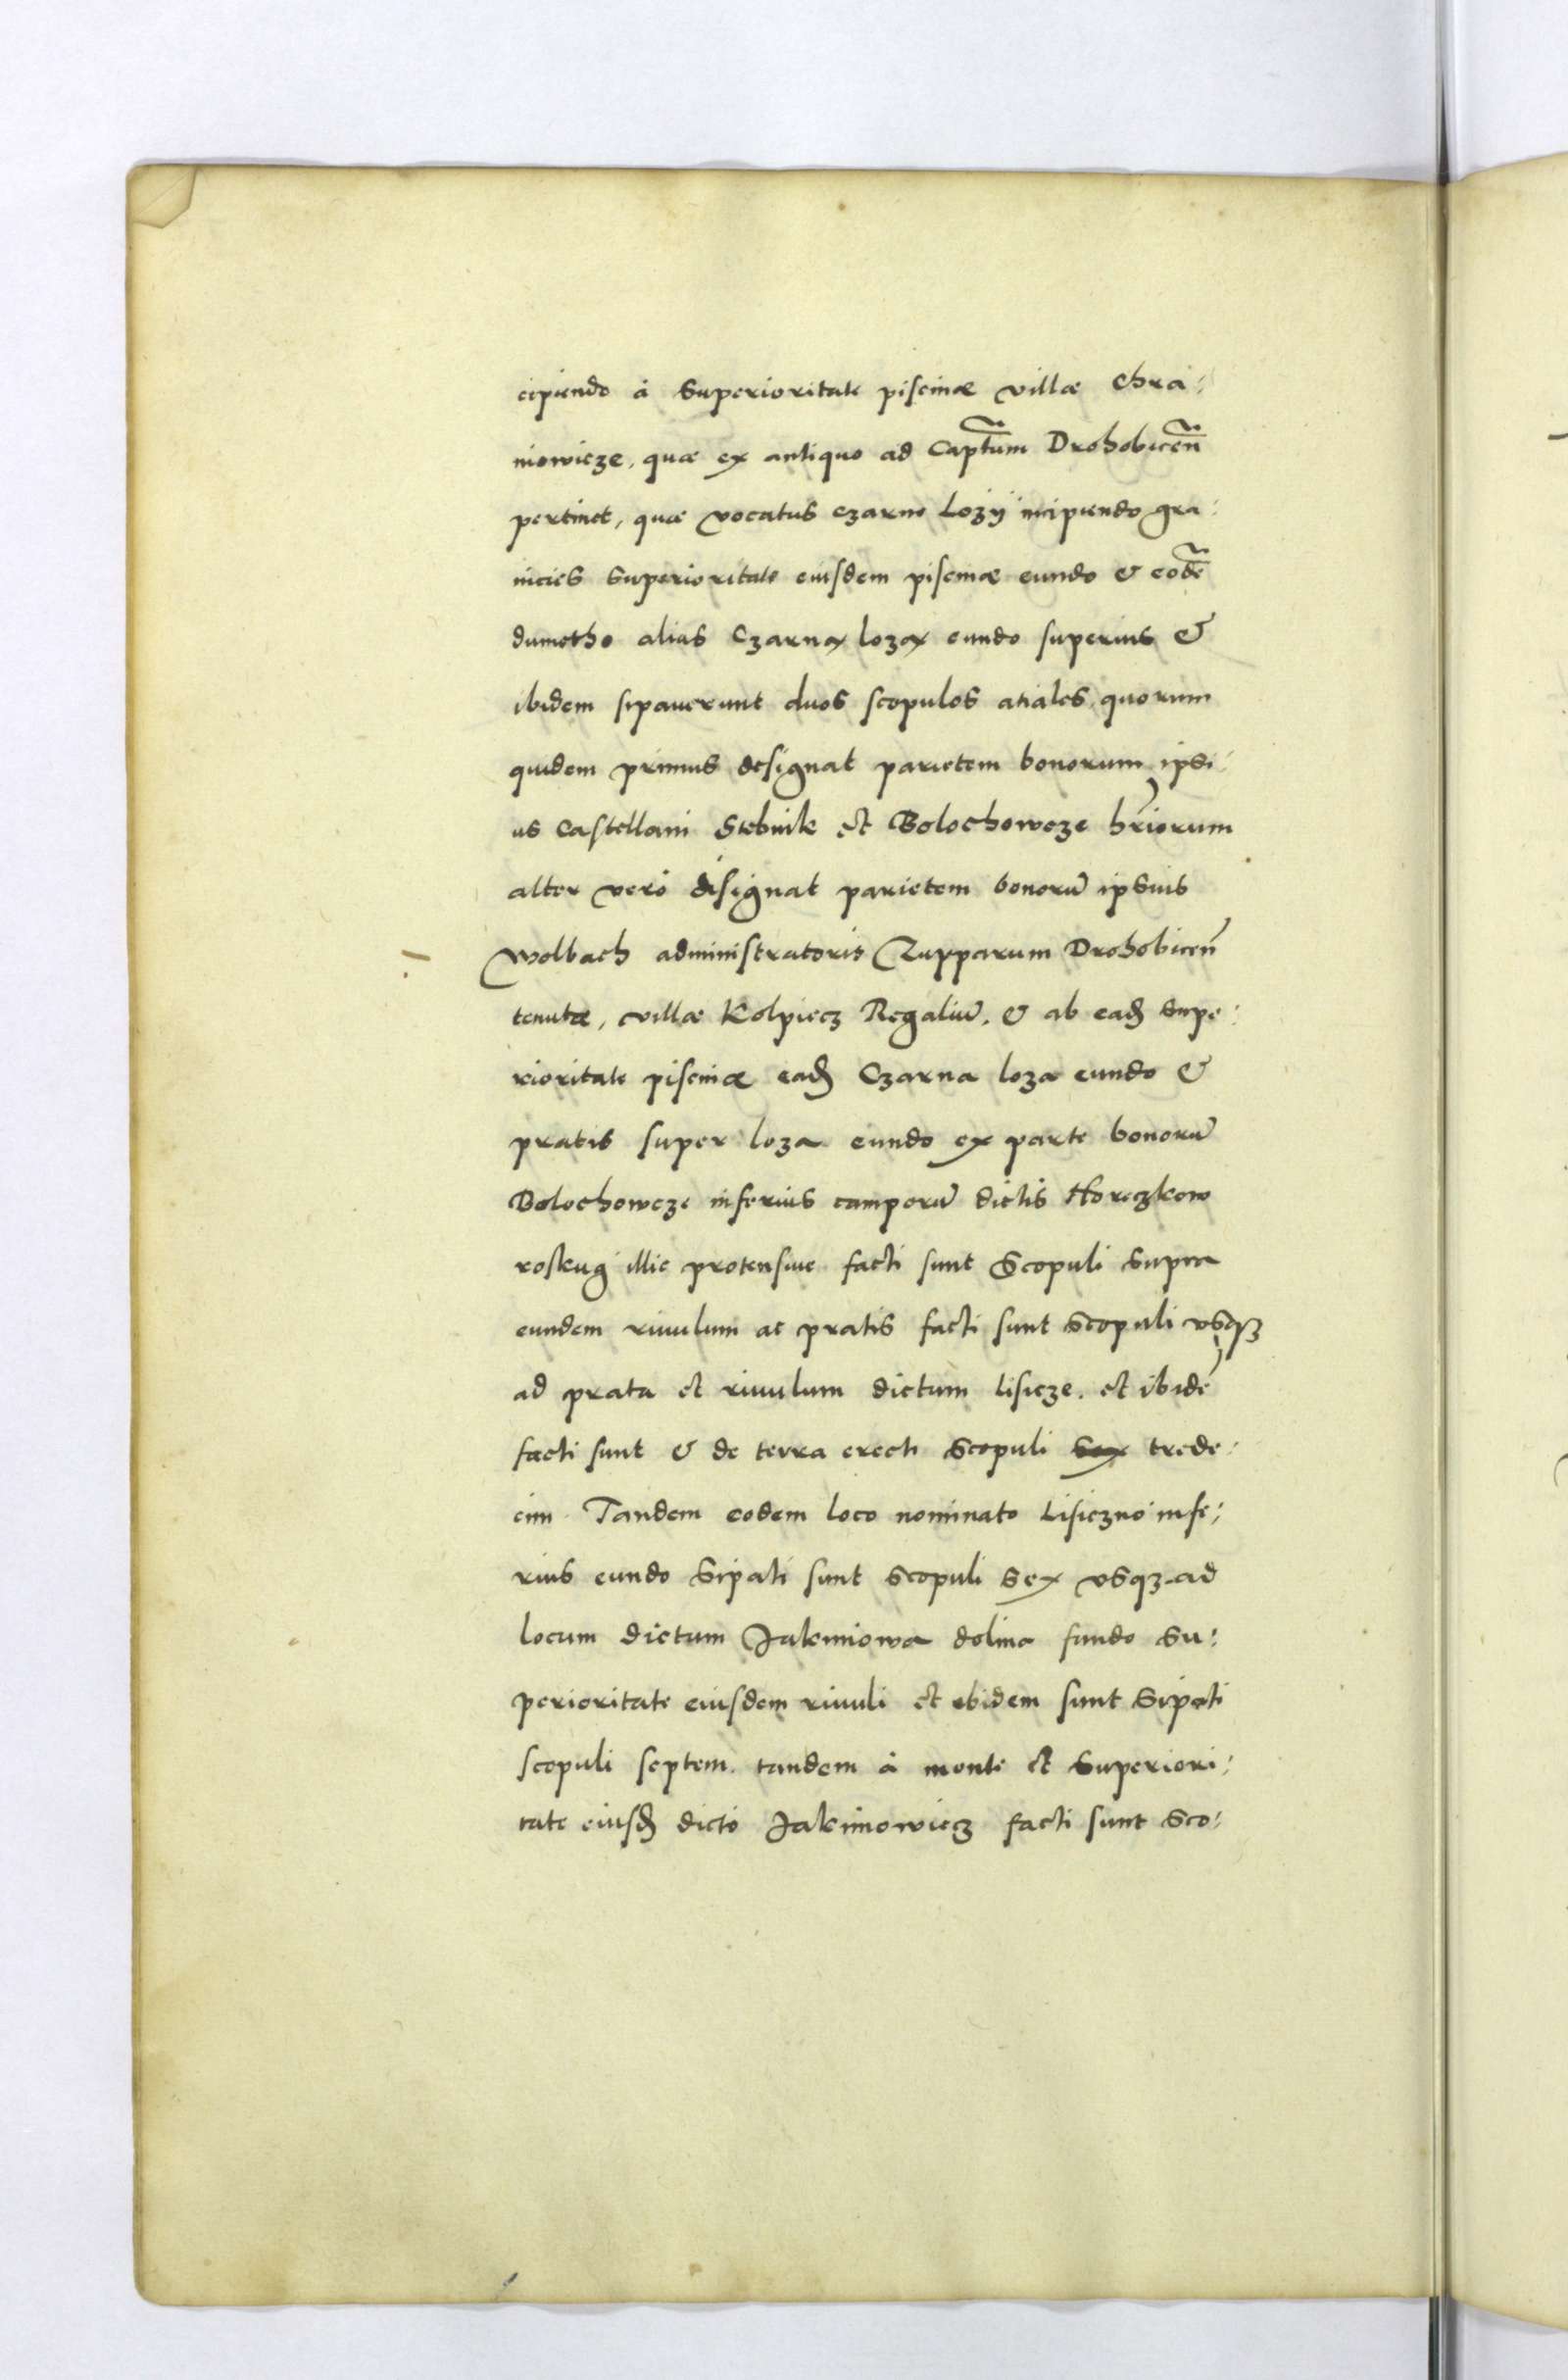 cipiendo à superioritate piscinæ villæ Chra:
niowicze, quæ ex antiquo ad Captm̃ Drohobiceñ
pertinet, quæ vocatus czarne Lozÿ incipiendo gra:
nicies superioritate eiusdem piscinæ eundo & eodẽ
dumetho alias Czarnax lozax eundo superius &
ibidem sipauerunt duos scopulos aciales, quorum
quidem primus designat parietem bonorum ipsi:
us Castellani Stebnik et Bolochowcze hr̃iorum
alter verò designat parietem bonorũ ipsius
Wolbach administratoris Zupparum Drohobiceñ
tenutæ, villæ Kolpiecz Regaliũ, & ab eadẽ supe:
rioritate piscinæ eadẽ Czarna loza eundo &
pratis super loza eundo ex parte bonorũ
Bolochowcze inferius camporũ dictis Horeczkow
roskug illic protensiue facti sunt Scopuli supra
eundem riuulum ac pratis facti sunt Scopuli vsq3
ad prata et riuulum dictum lisicze. et ibidẽ
facti sunt & de terra erecti Scopuli trede:
cim. Tandem eodem loco nominato Lisiczno infe:
rius eundo sipati sunt scopuli sex vsq3 ad
locum dictum Jakimowa dolina fundo su:
perioritate eiusdem riuuli et ibidem sunt sipati
scopuli septem. tandem à monte et superiori:
tate eiusdẽ dicto Jakimowiecz facti sunt sco: